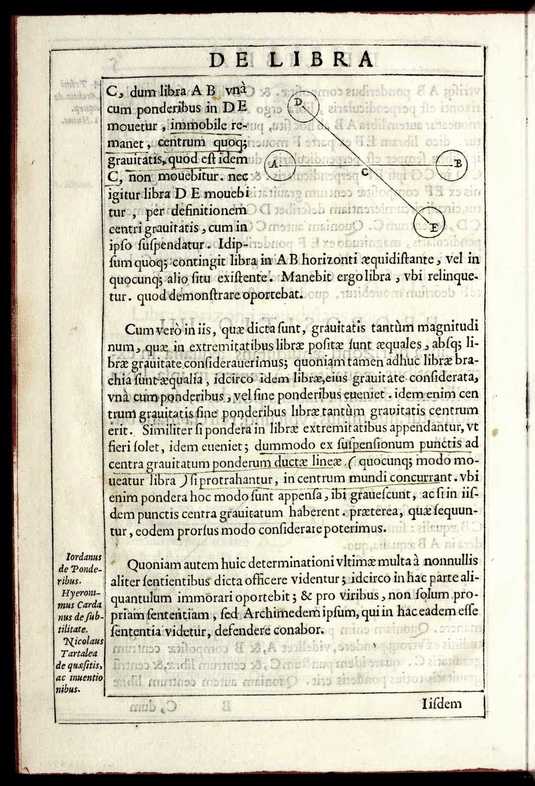 DE LIBRA
C, dum libra A B vnà
cum ponderibus in D E
mouetur, immobile re-
manet, centrum quoq;
grauitatis, quod est idem
C, non mouebitur. nec
igitur libra D E mouebi
tur, per definitionem
centri grauitatis, cum in
ipso suspendatur. Idip-
sum quoq; contingit libra in A B horizonti æquidistante, vel in
quocunq; alio situ existente. Manebit ergo libra, vbi relinque-
tur. quod demonstrare oportebat.
D
A
B
C
E
Cum verò in iis, quæ dicta sunt, grauitatis tantùm magnitudi
num, quæ in extremitatibus libræ positæ sunt æquales, absq; li-
bræ grauitate considerauerimus; quoniam tamen adhuc libræ bra-
chia sunt æqualia, idcirco idem libræ, eius grauitate considerata,
vnà cum ponderibus, vel sine ponderibus eueniet. idem enim cen
trum grauitatis sine ponderibus libræ tantùm grauitatis centrum
erit. Similiter si pondera in libræ extremitatibus appendantur, vt
fieri solet, idem eueniet; dummodo ex suspensionum punctis ad
centra grauitatum ponderum ductæ lineæ (quocunq; modo mo-
ueatur libra) si protrahantur, in centrum mundi concurrant. vbi
enim pondera hoc modo sunt appensa, ibi grauescunt, ac si in iis-
dem punctis centra grauitatum haberent. præterea, quæ sequun-
tur, eodem prorsus modo considerare poterimus.
Iordanus
de Ponde-
ribus.
Hyeroni-
mus Carda
nus de sub-
tilitate.
Nicolaus
Tartalea
de quæsitis,
ac inuentio
nibus.
Quoniam autem huic determinationi vltimæ multa à nonnullis
aliter sentientibus dicta officere videntur; idcirco in hac parte ali-
quantulum immorari oportebit; & pro viribus, non solum pro-
priam sententiam, sed Archimedem ipsum, qui in hac eadem esse
sententia videtur, defendere conabor.
Iisdem